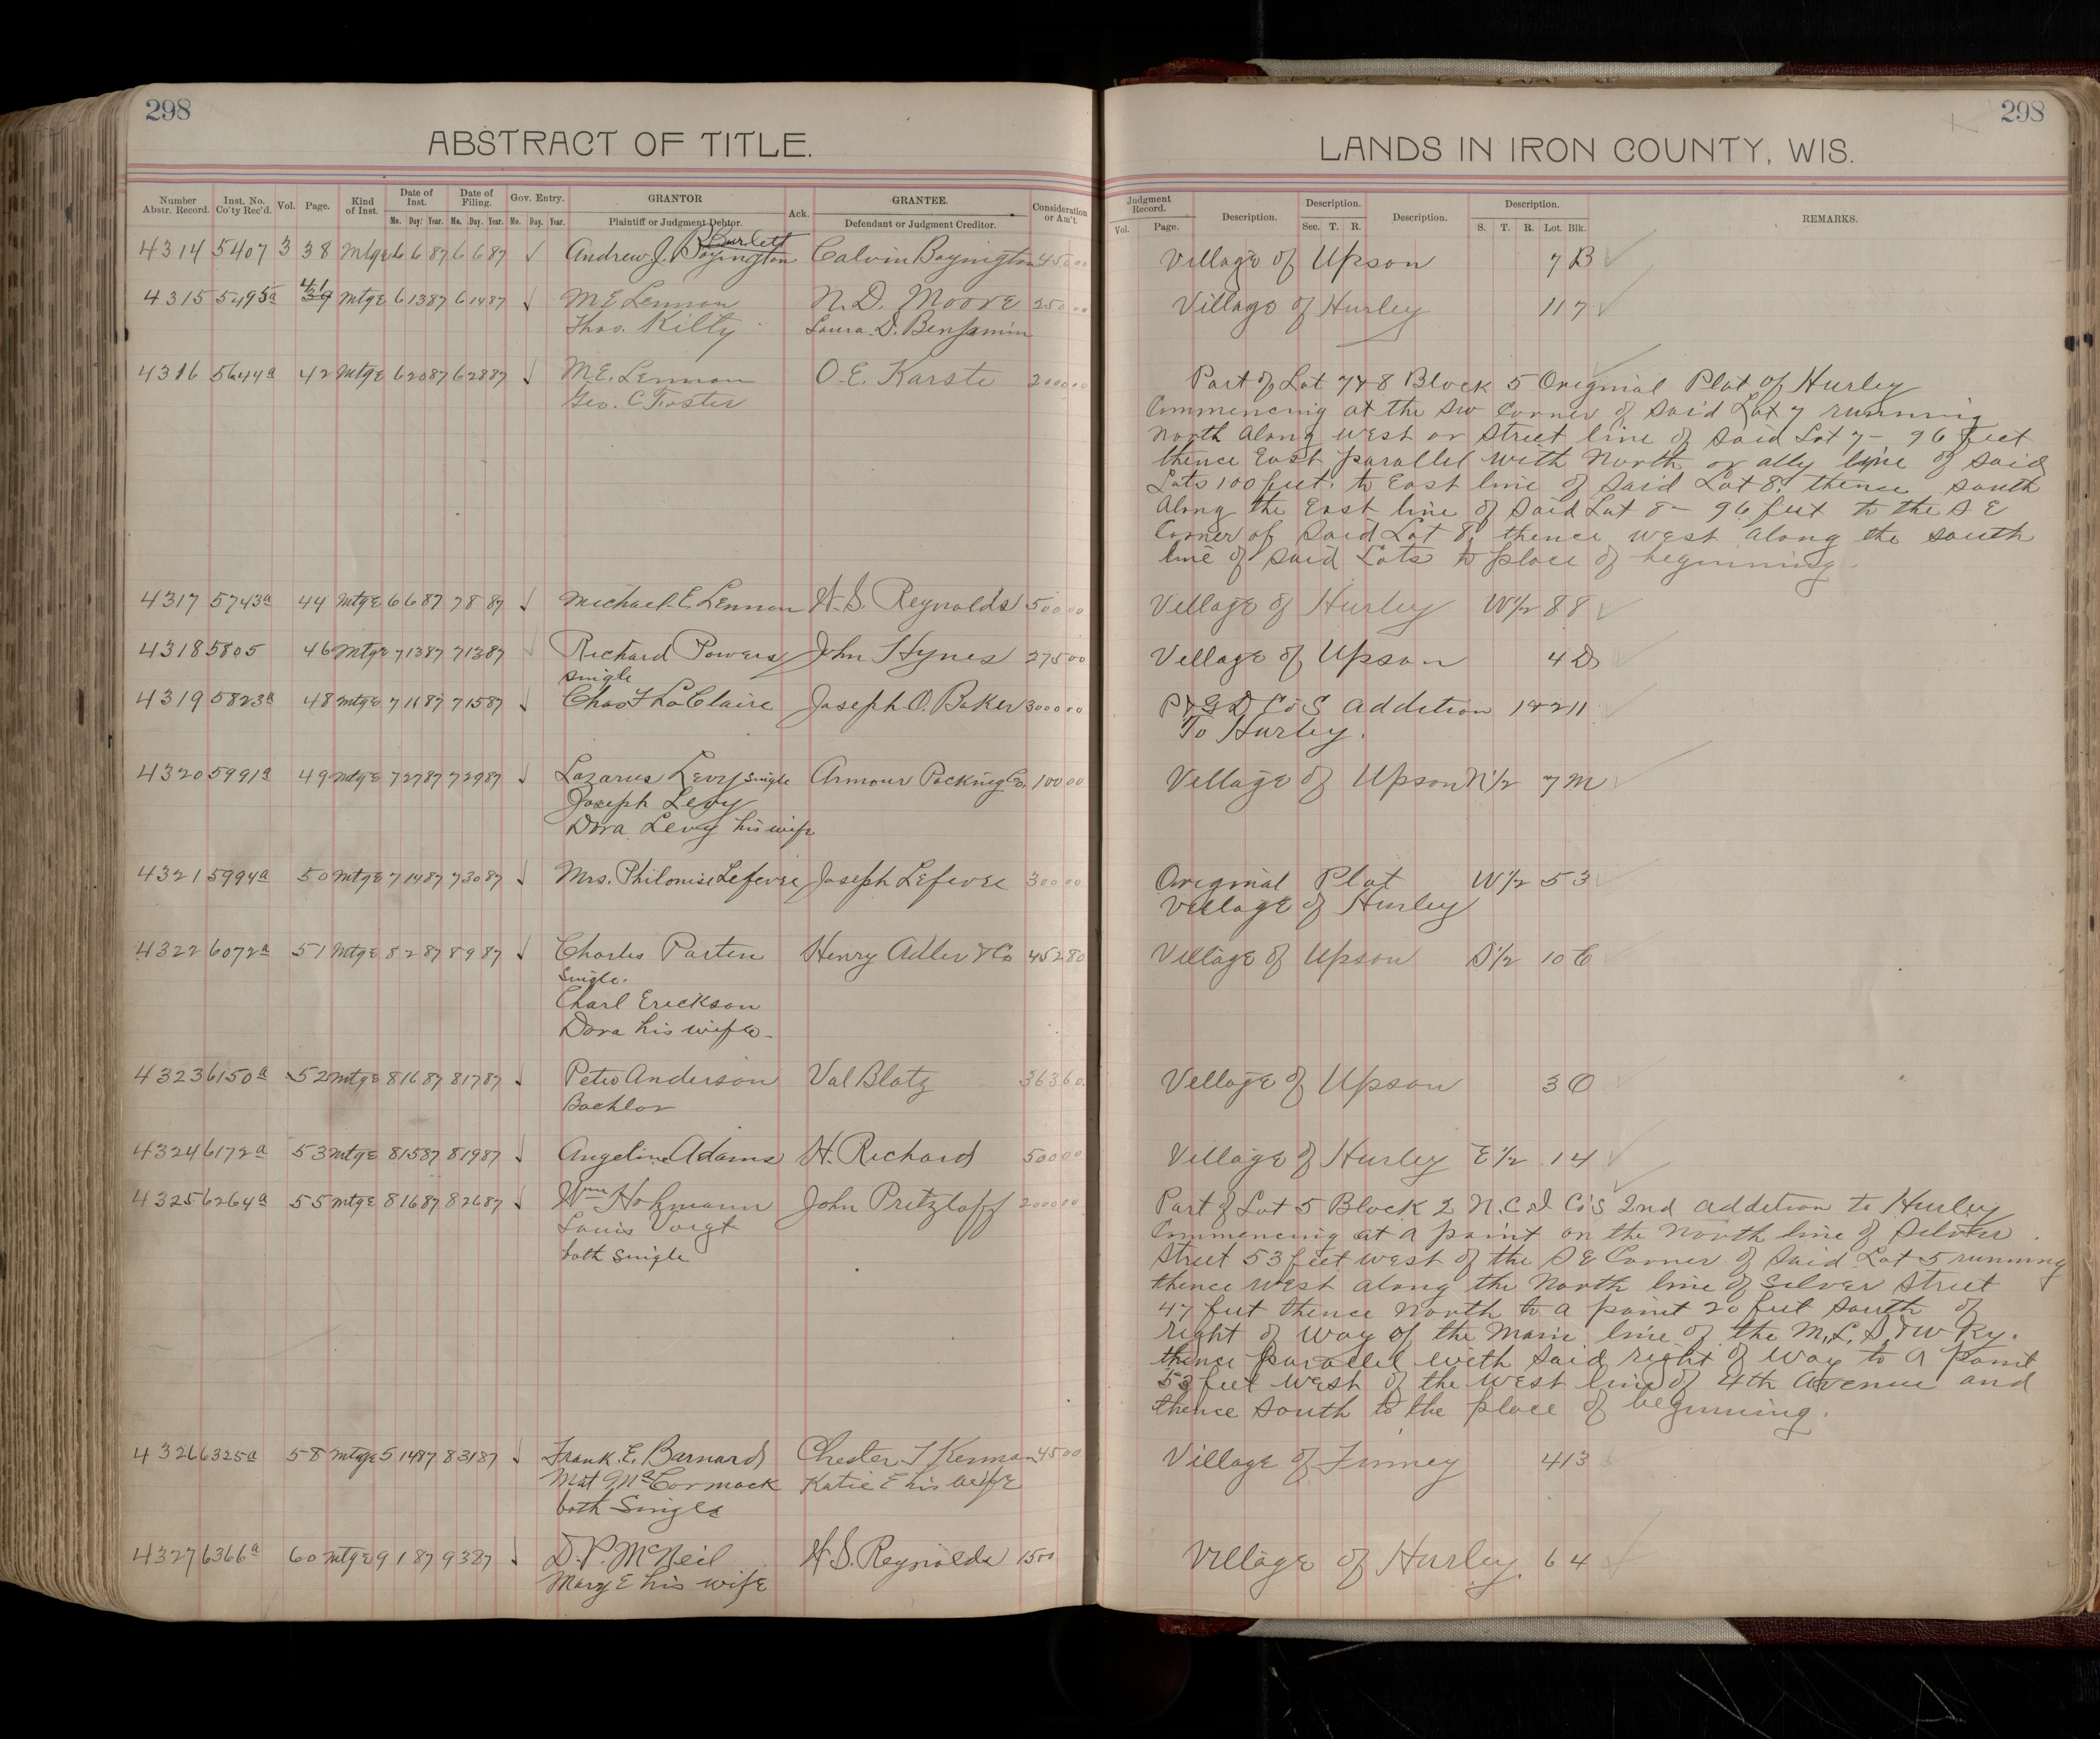 298
ABSTRACT OF TITLE.
Number Abstr. Record. Inst. No. Co'ty Rec'd. Vol. Page. Kind of Inst. Date of Inst. Mo. Day. Year. Date of Filing. Mo. Day. Year. Gov. Entry. Mo. Day. Year. GRANTOR Plaintiff or Judgment Debtor. Ack. GRANTEE. Defendant or Judgment Creditor. Consideration or Am't.
Burlett
4314 5407 3 38 Mtge 6 6 87 6 6 87 ✓ Andrew J. Boyington Calvin Boyington 450 00
4315 5495a 41 39 Mtge 6 13 87 6 14 87 ✓ M E Lennon N. D. Moore 250 00
Thos. Kilty Laura D. Benjamin
4316 5644a 42 Mtge 6 20 87 6 28 87 ✓ M.E. Lennon O. E. Karste 2000 00
Geo. C Foster
4317 5743a 44 Mtge 6 6 87 7 8 87 ✓ Michael E Lennon W. S. Reynolds 500 00
4318 5805 46 Mtge 7 13 87 7 13 87 Richard Powers John Hynes 275 00
single
4319 5823a 48 Mtge 7 16 87 7 15 87 ✓ Chas F LaClaire Joseph O. Baker 3000 00
4320 5991a 49 Mtge 7 27 87 7 29 87 ✓ Lazarus Levy single Armour Packing Co. 100 00
Joseph Levy
Dora Levy his wife
4321 5994a 50 Mtge 7 14 87 7 30 87 ✓ Mrs. Philonise Lefevre Joseph Lefevre 300 00
4322 6072a 51 Mtge 8 2 87 8 9 87 ✓ Charles Parten Henry Adler & Co 452 80
Single.
Charl Erickson
Dora his wife
4323 6150a 52 Mtge 8 16 87 8 17 87 ✓ Peter Anderson Val Blatz 363 60
Bachlor
4324 6172a 53 Mtge 8 15 87 8 19 87 ✓ Angeline Adams H. Richard 500 00
4325 6264a 55 Mtge 8 16 87 8 26 87 ✓ Wm Hohmann John Pritzlaff 2000 00
Louis Voigt
both single
4326 6325a 58 Mtge 5 14 87 8 31 87 ✓ Frank. E. Barnard Chester 45 00
Mat McCormack Katie E his wife
both Single
4327 6366a 60 Mtge 9 1 87 9 3 87 ✓ D. P. McNeil W. S. Reynolds 15 00
Mary E his wife
298
LANDS IN IRON COUNTY, WIS.
Judgment Record. Vol. Page. Description. Description. Sec. T. R. Description. Description. S. T. R. Lot. Blk. REMARKS.
Village of Upson 7 B ✓
Village of Hurley 11 7 ✓
Part of Lot 7 & 8 Block 5 Original Plat of Hurley
Commencing at the SW Corner of said Lot 7 running
North along West or Street line of said Lot 7 - 96 feet
thence East parallel with North or ally line of said
Lots 100 feet. to East line of said Lot 8. thence south
along the East line of said Lot 8 - 96 feet to the S E
Corner of said Lot 8. thence west along the south
line of said Lots to place of beginning.
Village of Hurley W 1/2 8 8 ✓
Village of Upson 4 D
P & G D Co S addetion 1 & 2 11
To Hurley.
Village of Upson N 1/2 7 M
Original Plat W 1/2 5 3
Village of Hurley
Village of Upson S 1/2 10 C
Village of Upson 3 O
Village of Hurley E 1/2 1 4
Part of Lot 5 Block 2 N. C & I Co's 2nd addetion to Hurley
Commencing at a point on the North line of Silver
Street 53 feet west of the S E Corner of said Lot 5 running
thence West along the North line of Silver Street
47 feet thence North to a point 20 feet south of
right of way of the Main line of the M. L. S. & W Ry.
thence parallel with said right of way to a point
53 feet west of the West line of 4th Avenue and
thence south to the place of beginning.
Village of Finney 4 13
Village of Hurley. 6 4